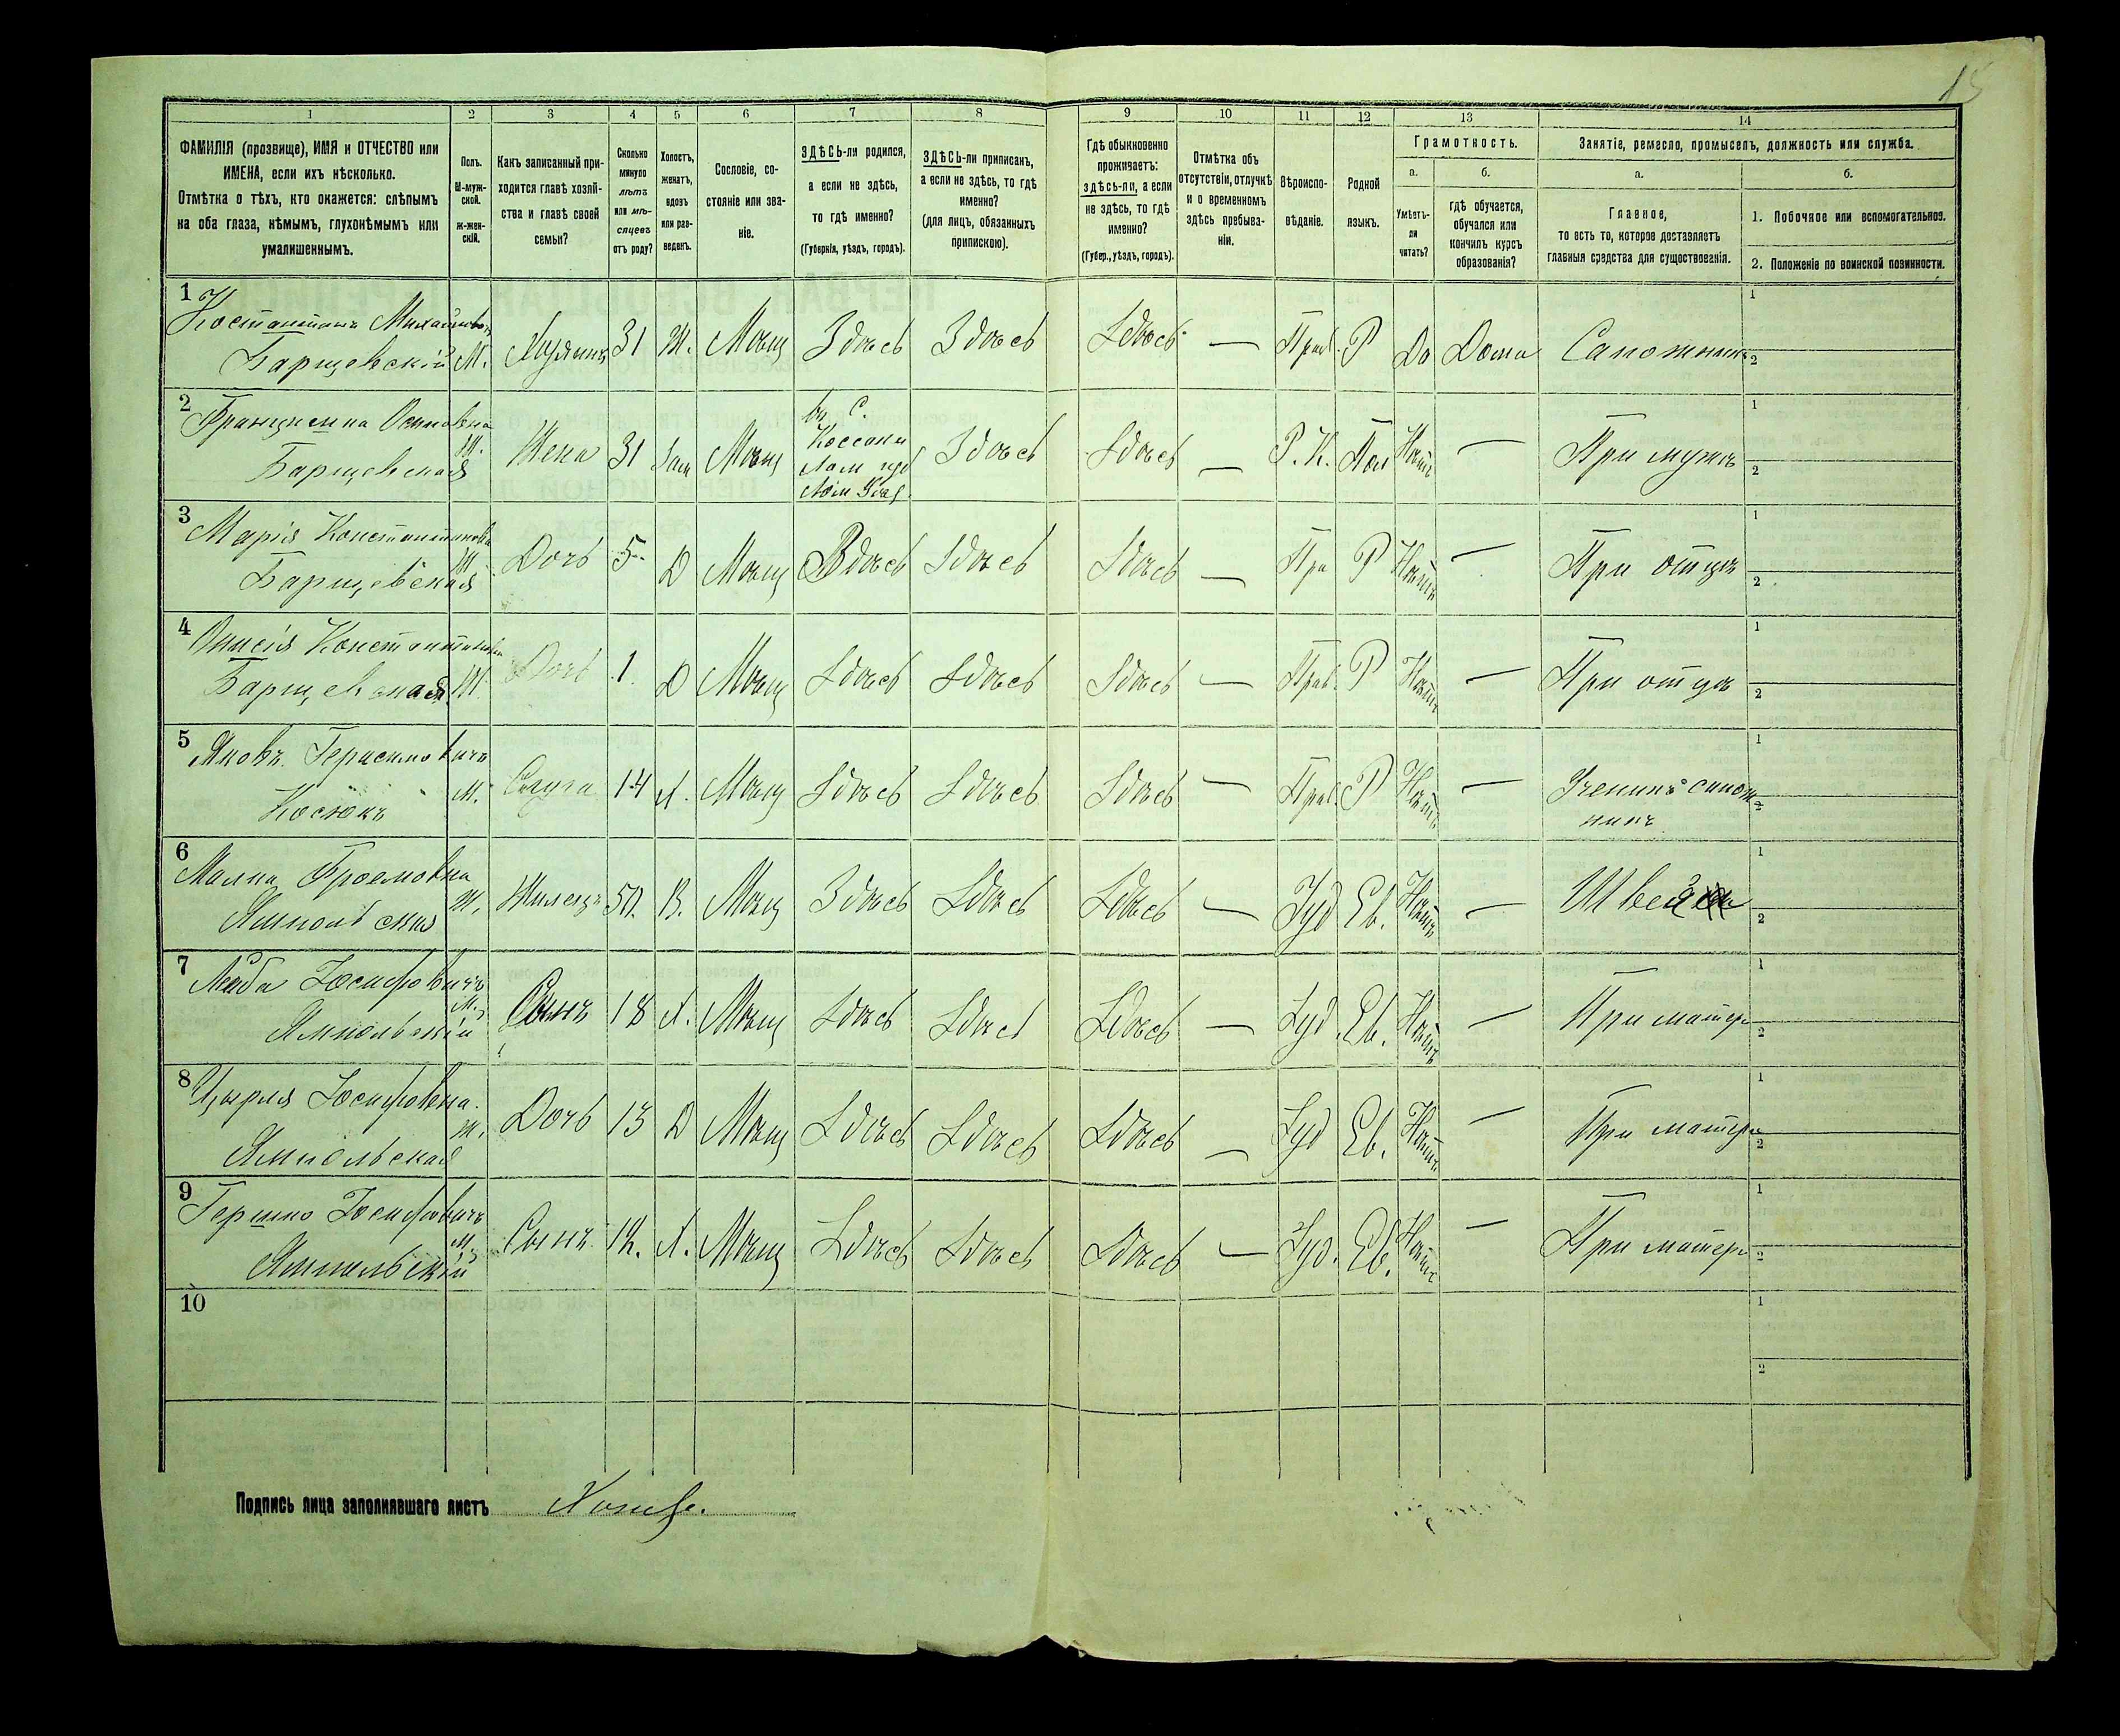 15
1 2 3 4 5 6 7 8 9 10 11 12 13 14
ФАМИЛІЯ (прозвище), ИМЯ и ОТЧЕСТВО или
ИМЕНА, если ихъ нѣсколько.
Отмѣтка о тѣхъ, кто окажется: слѣпымъ
на оба глаза, нѣмымъ, глухонѣмымъ или
умалишеннымъ.
Полъ.
М-муж-
ской.
Ж-жен-
скій.
Какъ записанный при-
ходится главѣ хозяй-
ства и главѣ своей
семьи?
Сколько
минуло
лѣтъ
или мѣ-
сяцевъ
отъ роду?
Холостъ,
женатъ,
вдовъ
или раз-
веденъ.
Сословіе, со-
стояніе или зва-
ніе.
ЗДѢСЬ-ли родился,
а если не здѣсь,
то гдѣ именно?
(Губернія, уѣздъ, городъ).
ЗДѢСЬ-ли приписанъ,
а если не здѣсь, то гдѣ
именно?
(для лицъ, обязанныхъ
припискою).
Гдѣ обыкновенно
проживаетъ:
здѣсь-ли, а если
не здѣсь, то гдѣ
именно?
(Губер., уѣздъ, городъ).
Отмѣтка объ
отсутствіи, отлучкѣ
и о временномъ
здѣсь пребыва-
ніи.
Вѣроиспо-
вѣданіе.
Родной
языкъ.
Грамотность.
а.
Умѣетъ-
ли
читать?
б.
гдѣ обучается,
обучался или
кончилъ курсъ
образованія?
Занятіе, ремесло, промыселъ, должность или служба.
а.
Главное,
то есть то, которое доставляетъ
главныя средства для существованія.
б.
1. Побочное или вспомогательное.
2. Положеніе по воинской повинности.
1 Костантинъ Михайлов
Барщевскій М. Хозяинъ 31 Ж. Мѣщ Здѣсь Здѣсь Здѣсь — Прав. Р Да Дома Сапожникъ 1 2
2 Францишка Осиповна
Барщевская Ж. Жена 31 Зам Мѣщ Здѣсь Здѣсь — Р. К. Пол Нѣтъ — При мужѣ 1 2
3 Марія Константиновна
Барщевская Ж Дочь 5 Д Мѣщ Здѣсь Здѣсь Здѣсь — Пра Р Нѣтъ — При отцѣ 1 2
4 Константиновна
Барщевская Ж. Дочь 1. Д Мѣщ Здѣсь Здѣсь Здѣсь — Прав. Р Нѣтъ — При отцѣ 1 2
5 Яковъ Герасимовичъ
Косюкъ М. Слуга 14 Х. Мѣщ Здѣсь Здѣсь Здѣсь — Прав. Р Нѣтъ — Ученикъ сапож
никъ 1 2
6 Малка Фроемовна
Ямпольская Ж. Жилецъ 50. В. Мѣщ Здѣсь Здѣсь Здѣсь — Іуд Ев. Нѣтъ — Швея 1 2
7 Лейба Іосифовичъ
Ямпольскій М. Сынъ 18 Х. Мѣщ Здѣсь Здѣсь Здѣсь — Іуд. Ев. Нѣтъ — При матери 1 2
8 Цырля Іосифовна.
Ямпольская Ж. Дочь 13 Д Мѣщ Здѣсь Здѣсь Здѣсь — Іуд Ев. Нѣтъ — При матери 1 2
9 Гершко Іосифовичъ
Ямпольскій М. Сынъ 12. Х. Мѣщ Здѣсь Здѣсь Здѣсь — Іуд. Ев. Нѣтъ — При матери 1 2
10 1 2
Подпись лица заполнявшаго листъ